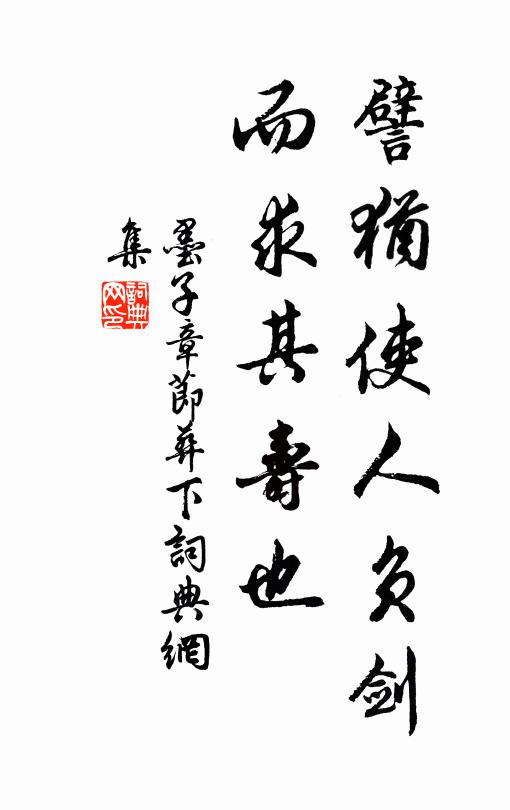 譬猶使人負劍
而求其壽也
墨子章節葬下詞典網
集
詞典
网印